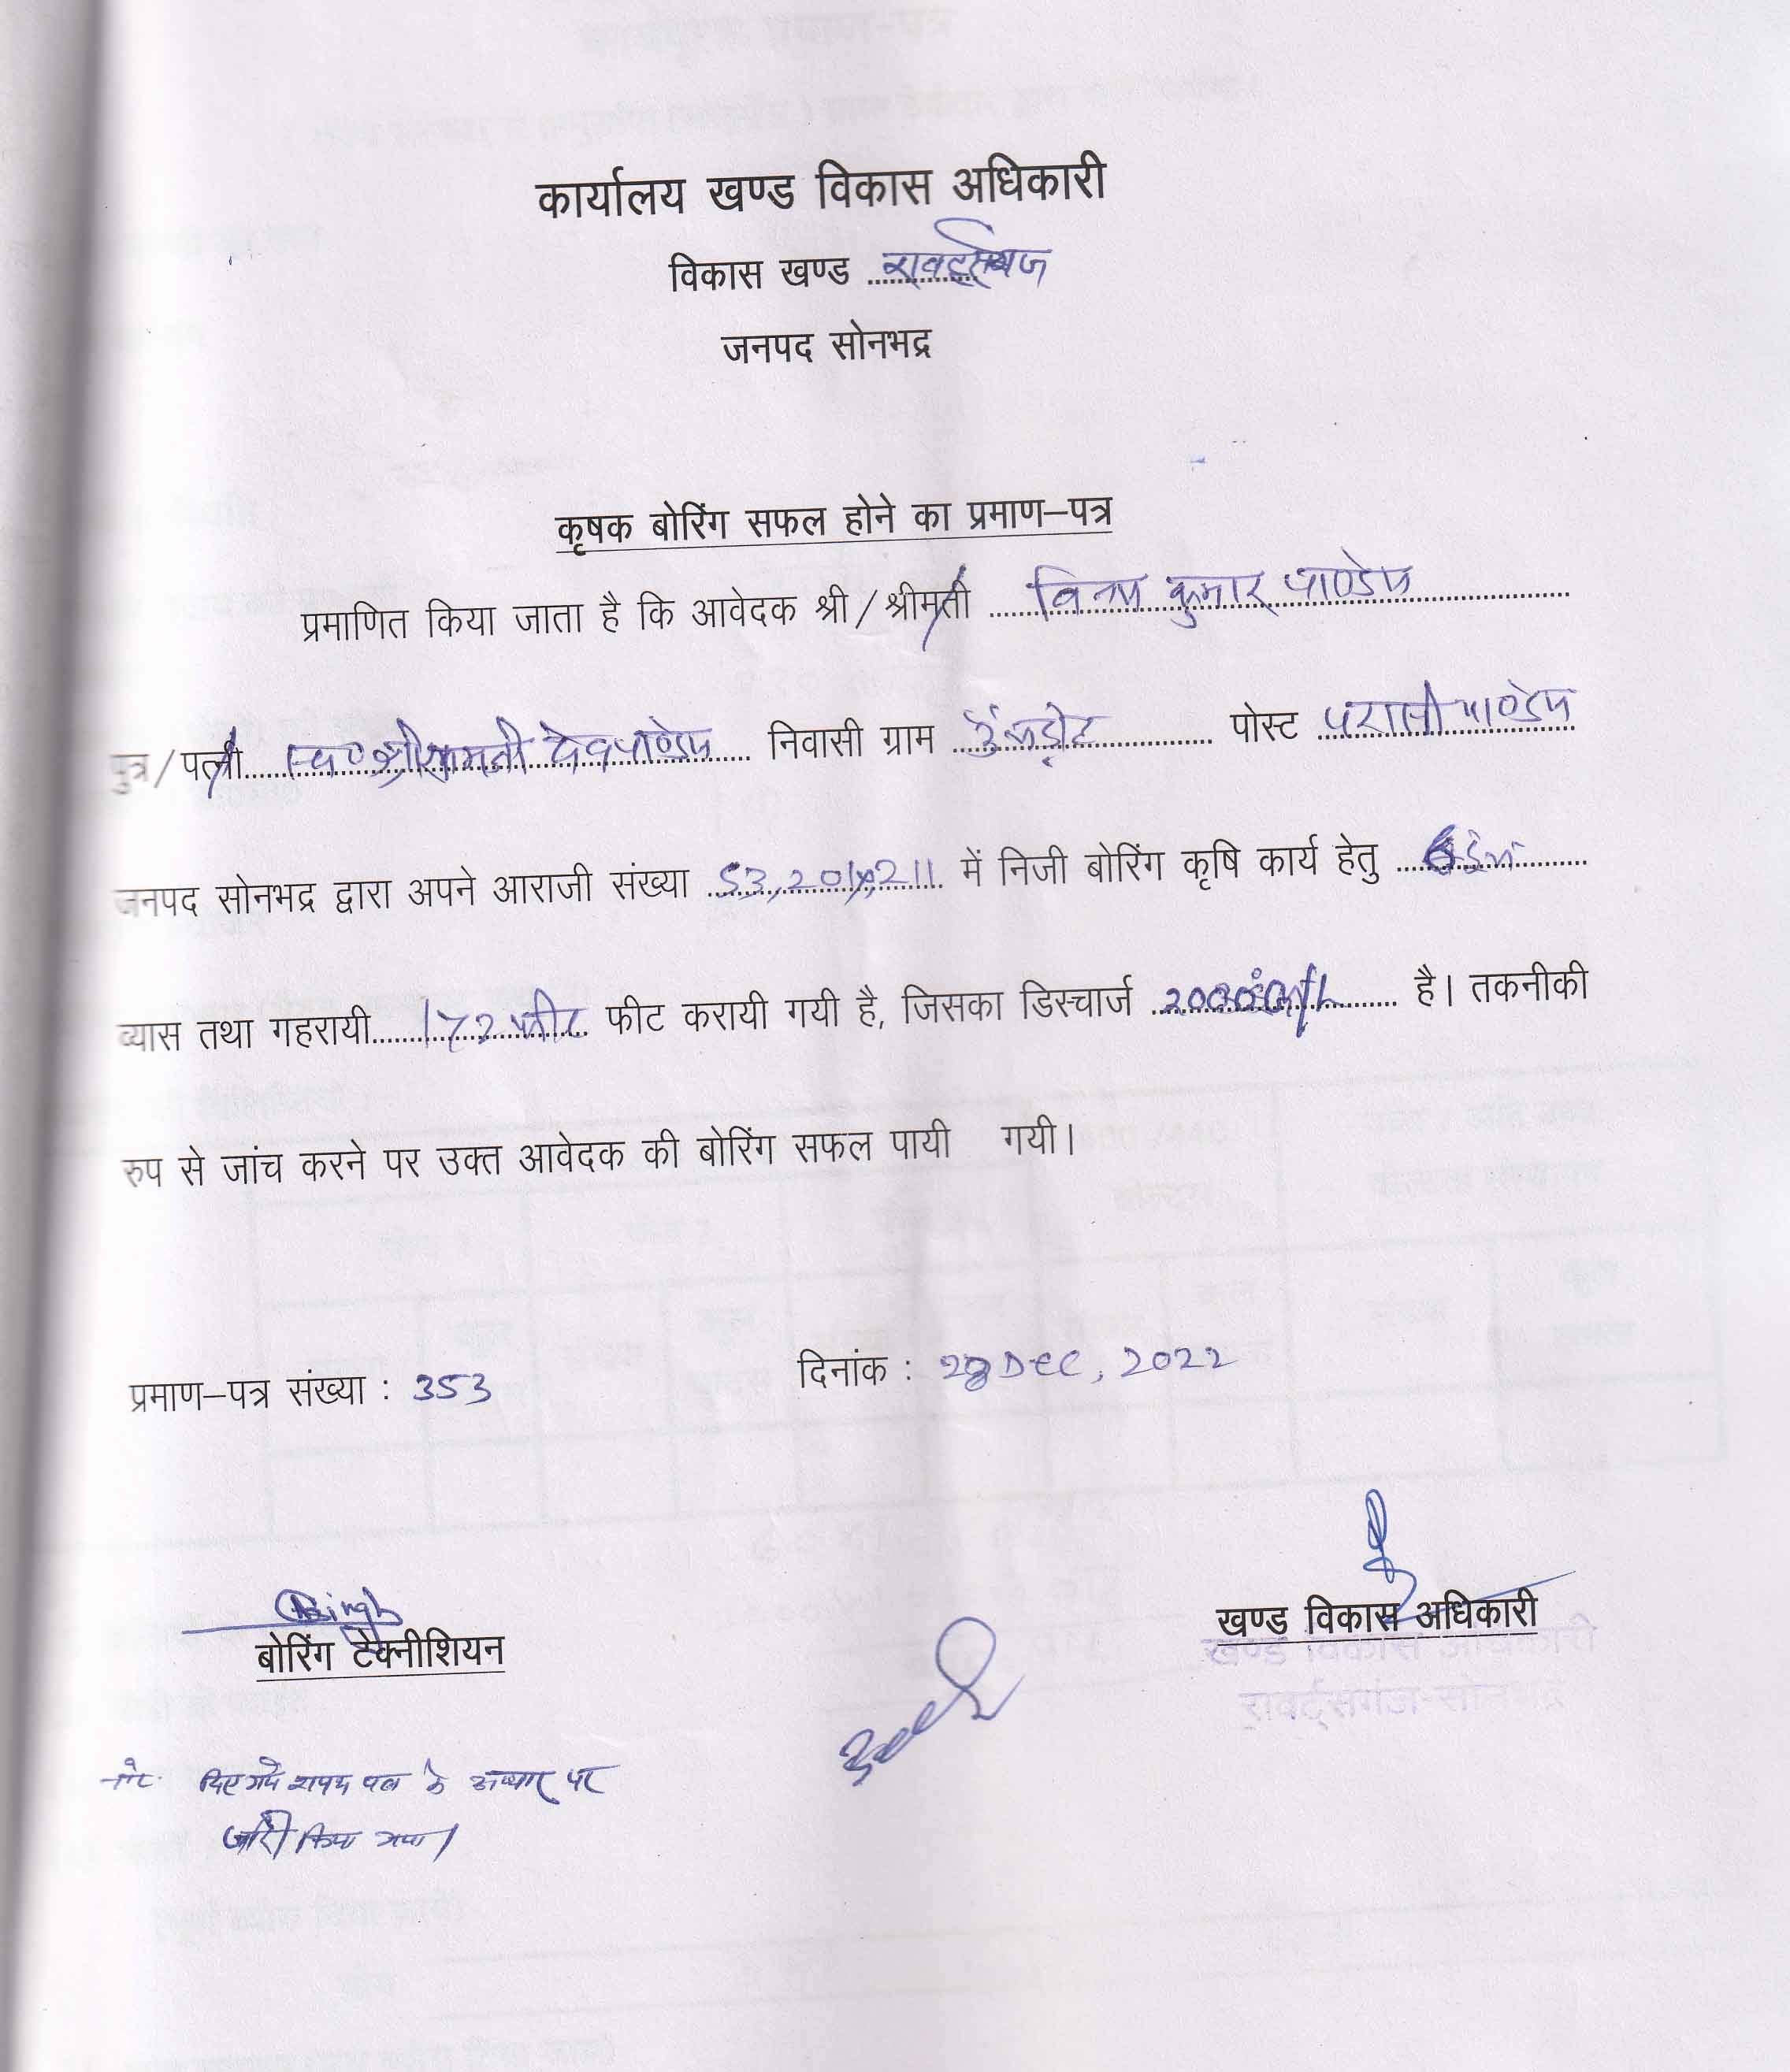 कार्यालय खण्ड विकास अधिकारी
विकास खण्ड
जनपद सोनभद्र
कृषक बोरिंग सफल होने का प्रमाण–पत्र
प्रमाणित किया जाता है कि आवेदक श्री / श्रीमती विनय कुमार पाण्डेय
पुत्र / पत्नी देव पाण्डेय निवासी ग्राम पोस्ट परासी पाण्डेय
जनपद सोनभद्र द्वारा अपने आराजी संख्या 53, 211 में निजी बोरिंग कृषि कार्य हेतु
व्यास तथा गहरायी फीट करायी गयी है, जिसका डिस्चार्ज है। तकनीकी
रुप से जांच करने पर उक्त आवेदक की बोरिंग सफल पायी गयी।
प्रमाण–पत्र संख्या : 353
दिनांक : 28 Dec, 2022
Singh
बोरिंग टैक्नीशियन
खण्ड विकास अधिकारी
खण्ड विकास अधिकारी
रावर्ट्सगंज-सोनभद्र
नोट दिए गये शपथ पत्र के आधार पर
जारी किया गया।